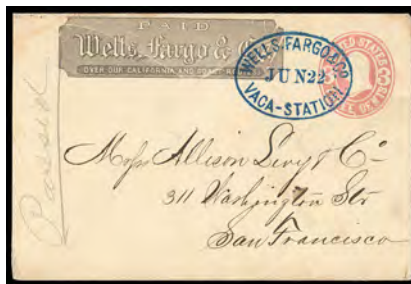 PAID
Wells, Fargo & Co
OVER OUR CALIFORNIA AND COAST ROUTES
WELLS, FARGO & CO
JUN 22
VACA-STATION
UNITED STATES
3
THREE CENTS
Mess Allison Levy & Co
311 Washington Str
San Francisco